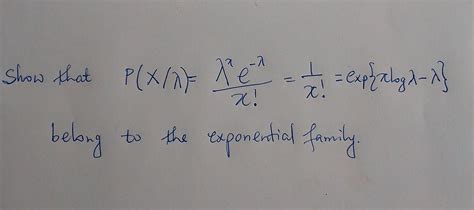 Show that P(X/λ) = λ^x e^{-λ} / x! = 1/x! = exp{x log λ - λ}
belong to the exponential family.